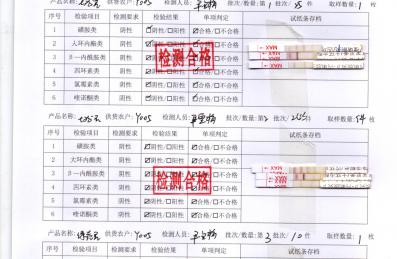 供货农户: Yoos 检测人员: 批次/数量: 第 1 批次/ 取样数量: 1 枚
序号 检验项目 检测要求 检验结果 单项判定 试纸条存档
1 磺胺类 阴性 ☑阴性/□阳性 ☑合格/□不合格
2 大环内酯类 阴性 ☑阴性/□阳性 ☑合格/□不合格
3 β—内酰胺类 阴性 ☑阴性/□阳性 ☑合格/□不合格
4 四环素类 阴性 ☑阴性/□阳性 ☑合格/□不合格
5 氯霉素类 阴性 ☑阴性/□阳性 ☑合格/□不合格
6 喹诺酮类 阴性 ☑阴性/□阳性 ☑合格/□不合格
检测合格
MAX
产品名称: 供货农户: Yoos 检测人员: 批次/数量: 第 批次/ 取样数量: 枚
序号 检验项目 检测要求 检验结果 单项判定 试纸条存档
1 磺胺类 阴性 ☑阴性/□阳性 ☑合格/□不合格
2 大环内酯类 阴性 ☑阴性/□阳性 ☑合格/□不合格
3 β—内酰胺类 阴性 ☑阴性/□阳性 ☑合格/□不合格
4 四环素类 阴性 ☑阴性/□阳性 ☑合格/□不合格
5 氯霉素类 阴性 ☑阴性/□阳性 ☑合格/□不合格
6 喹诺酮类 阴性 ☑阴性/□阳性 ☑合格/□不合格
检测合格
MAX
产品名称: 供货农户: Yoos 检测人员: 批次/数量: 第 3 批次/ 10 件 取样数量: 1 枚
序号 检验项目 检测要求 检验结果 单项判定 试纸条存档